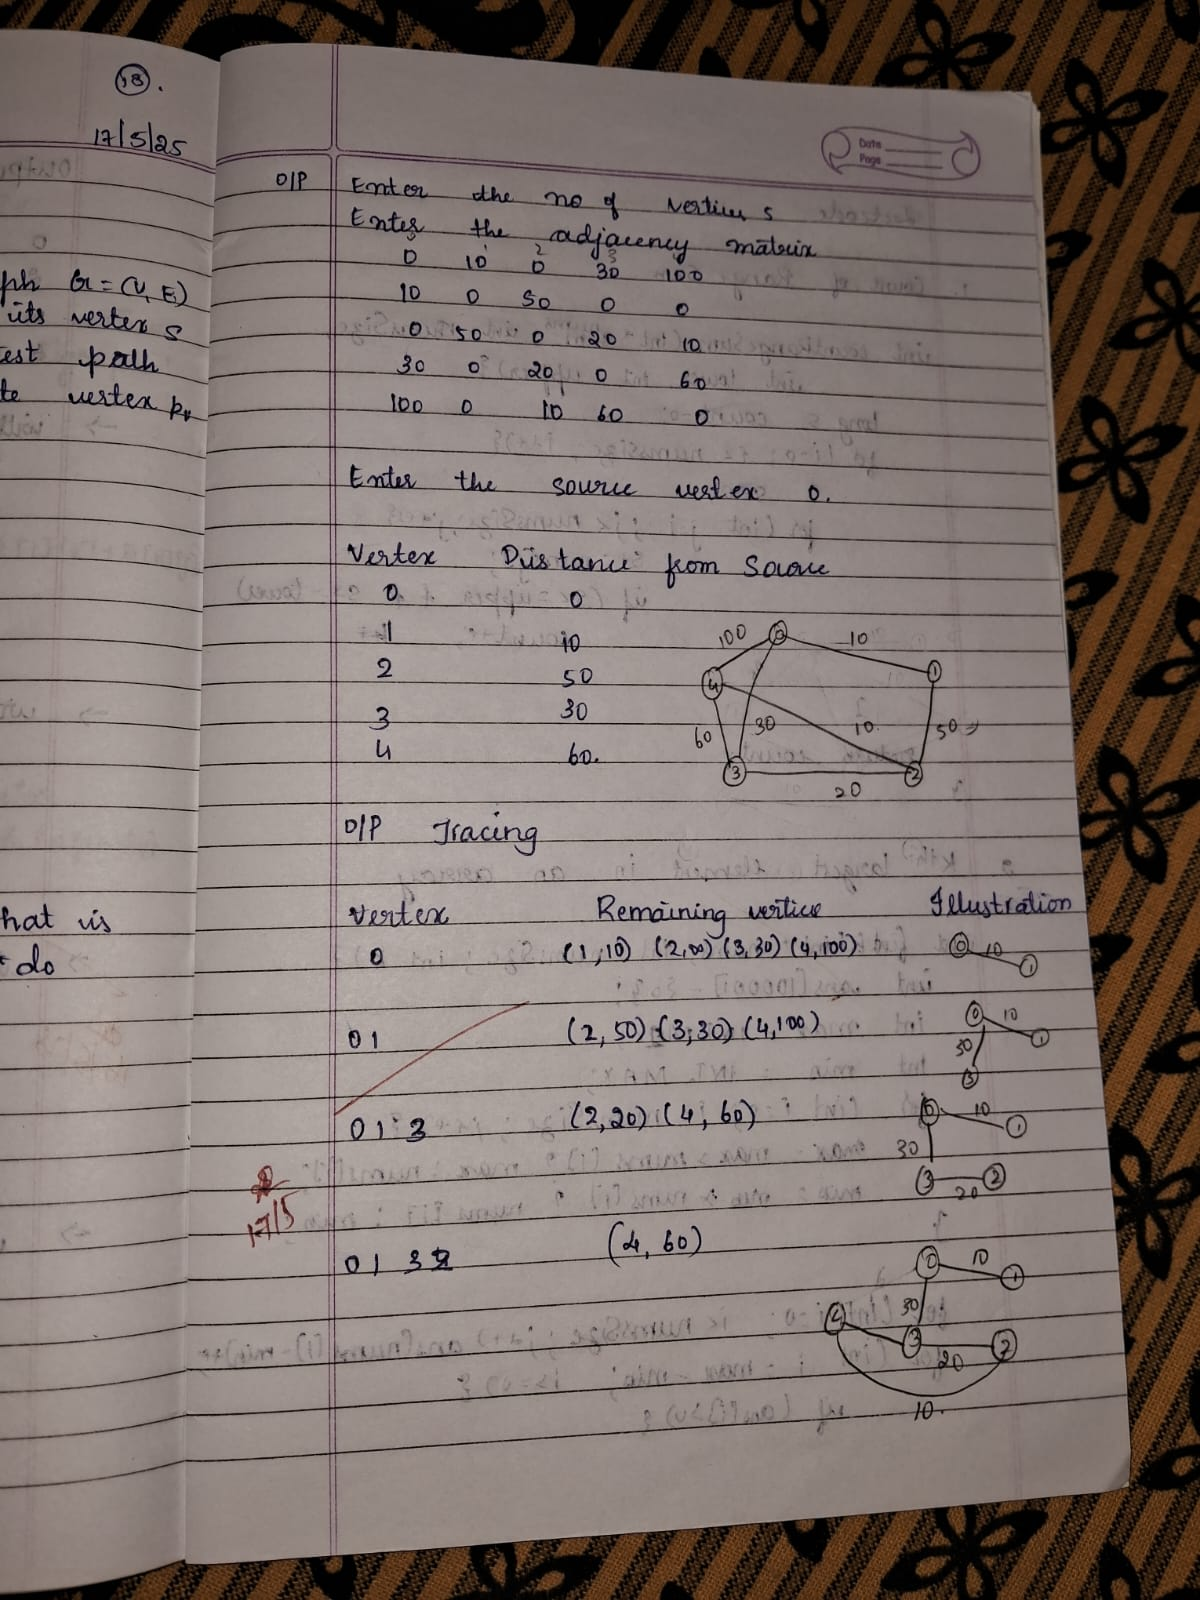 18.
17/5/25
ph G = (V, E)
its vertex s
est path
te vertex
hat is
do
Date
Page
O/P Enter the no of vertices 5
Enter the adjacency matrix
0 10 0 30 100
10 0 50 0 0
0 50 0 20 10
30 0 20 0 60
100 0 10 60 0
Enter the source vertex 0.
Vertex Distance from Source
0 0
1 10
2 50
3 30
4 60.
100 0 10
4 1
60 30 10 50
3 2
20
O/P Tracing
Vertex Remaining vertice Illustration
0 (1,10) (2,∞) (3,30) (4,100) 0 10 1
01 (2,50) (3,30) (4,100) 0 10 1
30
3
013 (2,20) (4,60) 0 10 1
30
3 20 2
17/5
0132 (4,60) 0 10 1
30
4 3 20 2
10.